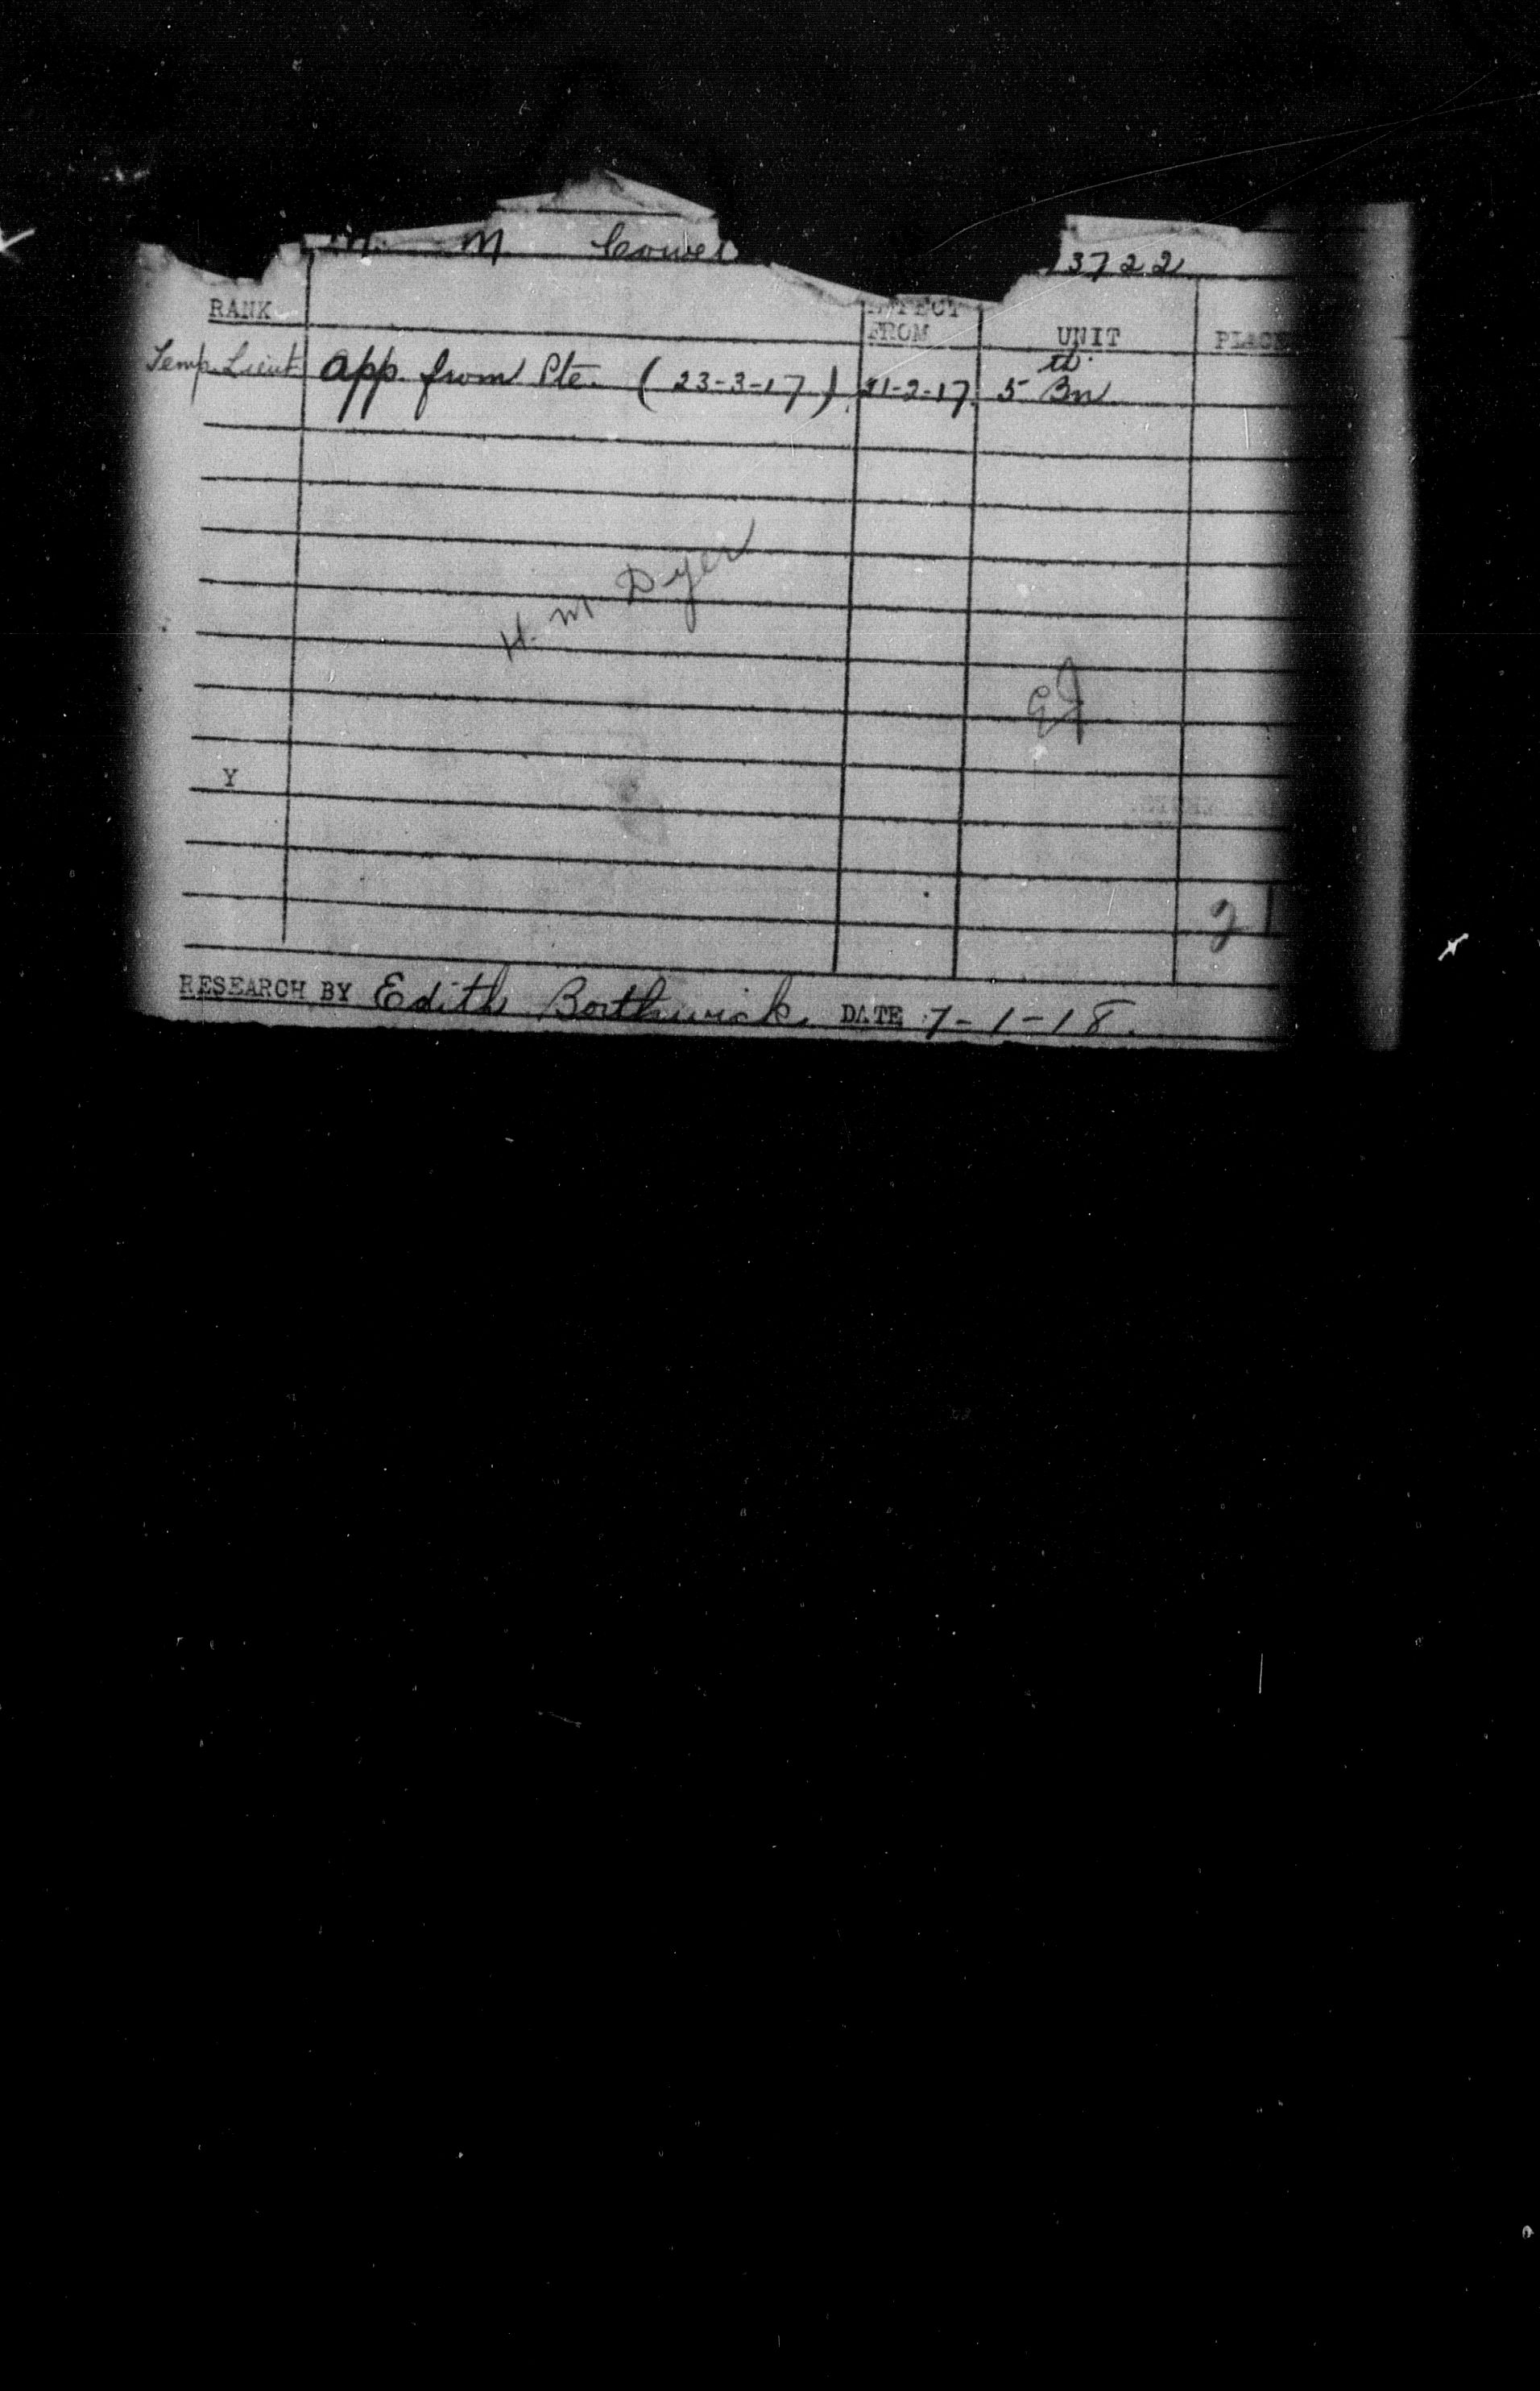 M. Cowel 13722
RANK EFFECT FROM UNIT PLACE
Temp. Lieut app. from Pte. (23-3-17) 21-2-17. 5th Bn.
H. M Dyer
EJ
Y
21
RESEARCH BY Edith Borthwick DATE 7-1-18.